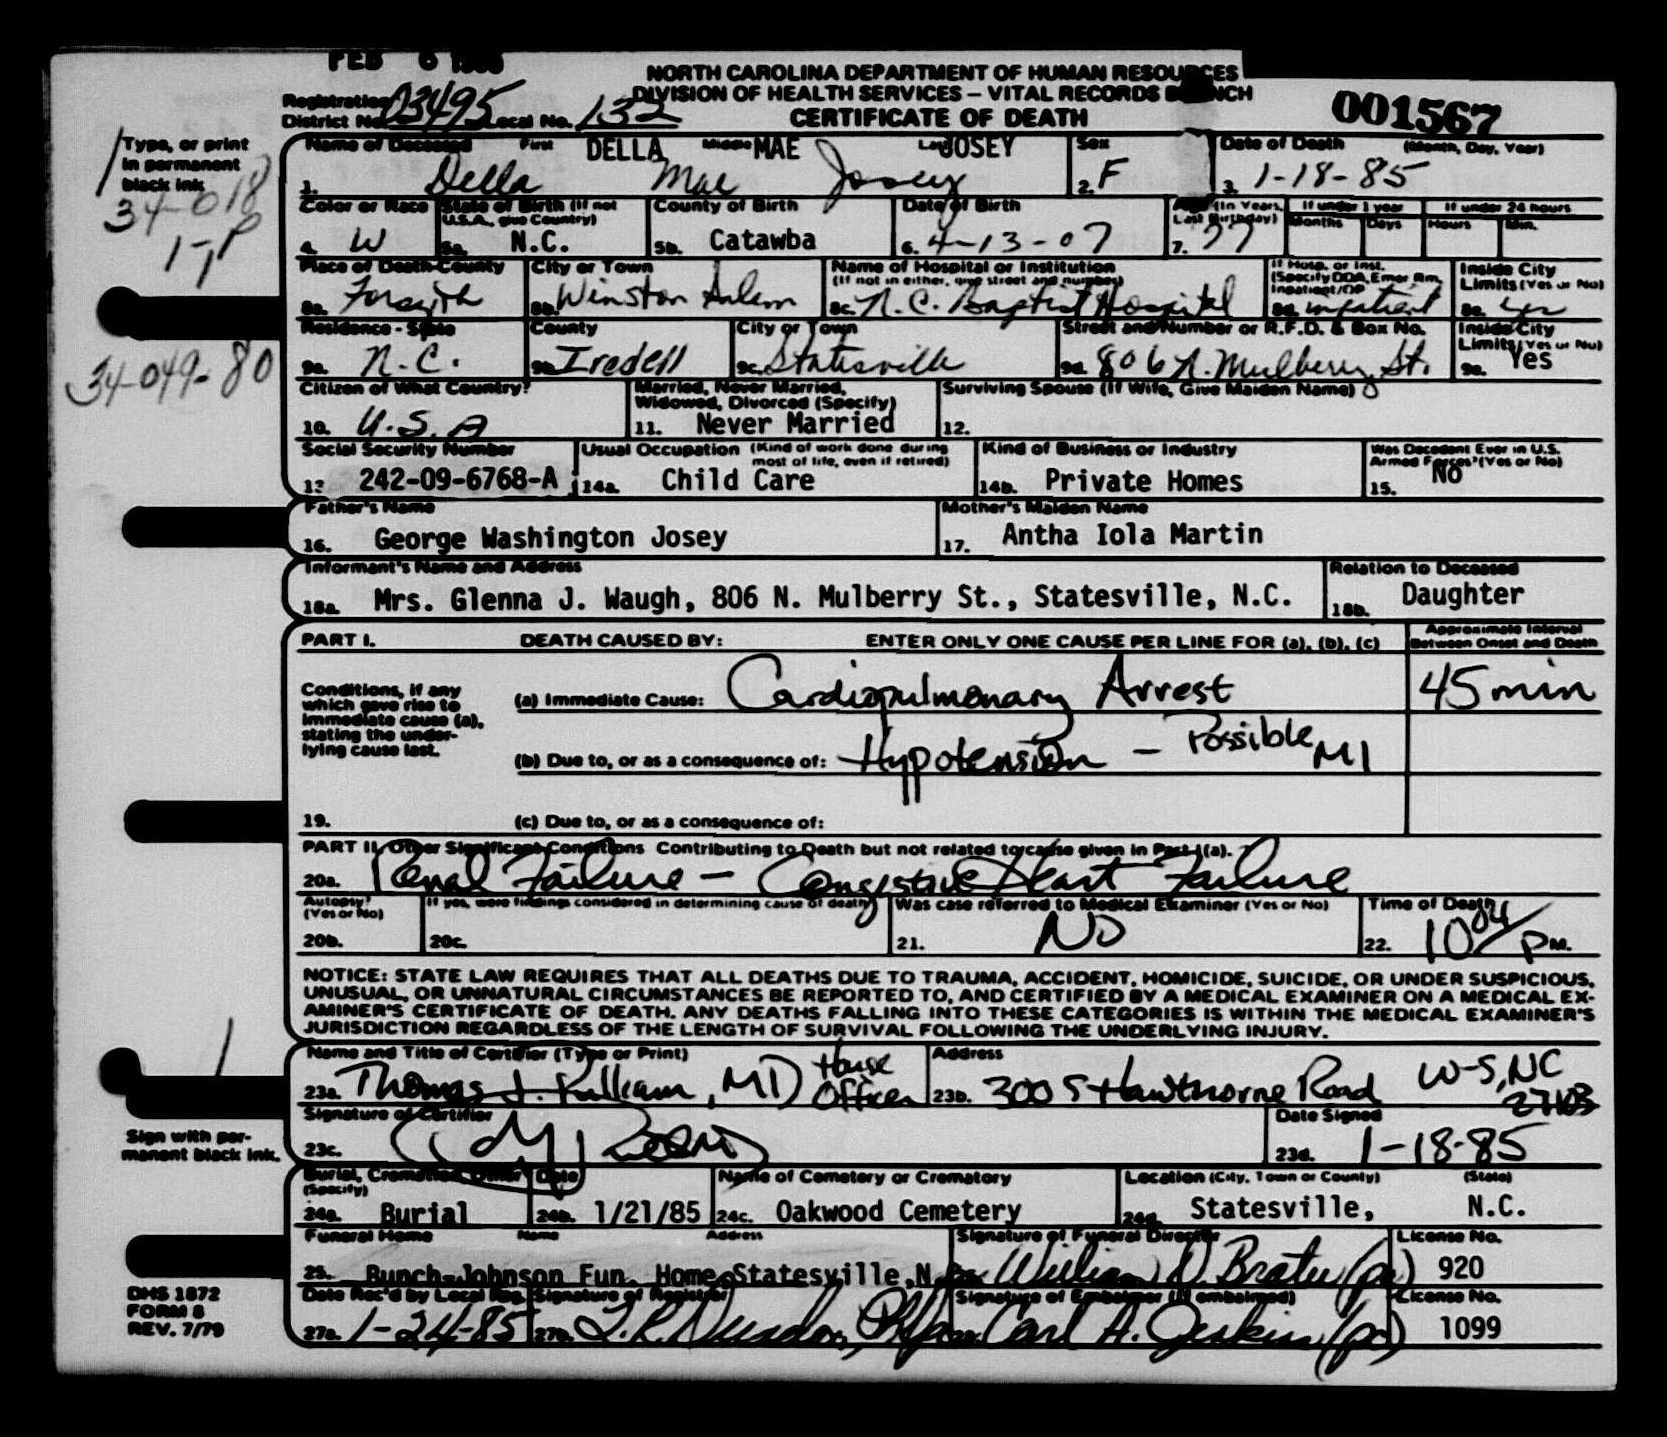 FEB 6 1985
NORTH CAROLINA DEPARTMENT OF HUMAN RESOURCES
DIVISION OF HEALTH SERVICES – VITAL RECORDS BRANCH
CERTIFICATE OF DEATH
001567
Registration District No. 3495 Local No. 132
Type, or print in permanent black ink
34-018
1-P
34-049-80
Name of Deceased First DELLA Middle MAE Last JOSEY
1. Della Mae Josey
Sex 2. F
Date of Death (Month, Day, Year) 3. 1-18-85
Color or Race 4. W
State of Birth (If not U.S.A., give Country) 5a. N.C.
County of Birth 5b. Catawba
Date of Birth 6. 4-13-07
(In Years, Last Birthday) 7. 77
If under 1 year Months Days
If under 24 hours Hours Min.
Place of Death-County 8a. Forsyth
City or Town 8b. Winston Salem
Name of Hospital or Institution (If not in either, give street and number) 8c. N.C. Baptist Hospital
If Hosp. or Inst. (Specify DOA, Emer Rm, Inpatient/OP 8d. inpatient
Inside City Limits (Yes or No) 8e. yes
Residence - State 9a. N.C.
County Iredell
City or Town 9c. Statesville
Street and Number or R.F.D. & Box No. 9d. 806 N. Mulberry St.
Inside City Limits (Yes or No) 9e. Yes
Citizen of What Country? 10. U.S.A
Married, Never Married, Widowed, Divorced (Specify) 11. Never Married
Surviving Spouse (If Wife, Give Maiden Name) 12.
Social Security Number 13 242-09-6768-A
Usual Occupation (Kind of work done during most of life, even if retired) 14a. Child Care
Kind of Business or Industry 14b. Private Homes
Was Decedent Ever in U.S. Armed Forces? (Yes or No) 15. No
Father's Name 16. George Washington Josey
Mother's Maiden Name 17. Antha Iola Martin
Informant's Name and Address 18a. Mrs. Glenna J. Waugh, 806 N. Mulberry St., Statesville, N.C.
Relation to Deceased 18b. Daughter
PART I. DEATH CAUSED BY: ENTER ONLY ONE CAUSE PER LINE FOR (a), (b), (c)
Approximate Interval Between Onset and Death
Conditions, if any which gave rise to immediate cause (a), stating the underlying cause last.
(a) Immediate Cause: Cardiopulmonary Arrest 45 min
(b) Due to, or as a consequence of: Hypotension – Possible MI
19. (c) Due to, or as a consequence of:
PART II. Other Significant Conditions Contributing to Death but not related to cause given in Part I(a).
20a. Renal Failure – Congestive Heart Failure
Autopsy? (Yes or No) 20b.
If yes, were findings considered in determining cause of death 20c.
Was case referred to Medical Examiner (Yes or No) 21. NO
Time of Death 22. 10 04 P M.
NOTICE: STATE LAW REQUIRES THAT ALL DEATHS DUE TO TRAUMA, ACCIDENT, HOMICIDE, SUICIDE, OR UNDER SUSPICIOUS,
UNUSUAL, OR UNNATURAL CIRCUMSTANCES BE REPORTED TO, AND CERTIFIED BY A MEDICAL EXAMINER ON A MEDICAL EX-
AMINER'S CERTIFICATE OF DEATH. ANY DEATHS FALLING INTO THESE CATEGORIES IS WITHIN THE MEDICAL EXAMINER'S
JURISDICTION REGARDLESS OF THE LENGTH OF SURVIVAL FOLLOWING THE UNDERLYING INJURY.
Name and Title of Certifier (Type or Print) 23a. Thomas J. Pulliam, MD House Officer
Address 23b. 300 S Hawthorne Road W-S, NC 27103
Signature of Certifier 23c.
Date Signed 23d. 1-18-85
Sign with permanent black ink.
Burial, Cremation, Other (Specify) 24a. Burial
Date 24b. 1/21/85
Name of Cemetery or Crematory 24c. Oakwood Cemetery
Location (City, Town or County) (State) 24d. Statesville, N.C.
Funeral Home Name Address
25. Bunch-Johnson Fun. Home, Statesville, N.
Signature of Funeral Director William D.
License No. 920
Date Rec'd by Local Reg. 27a. 1-24-85
Signature of Registrar 27b.
Signature of Embalmer (If embalmed) Carl A.
License No. 1099
DHS 1872
FORM 8
REV. 7/79